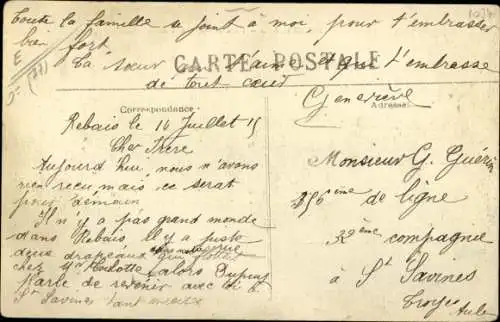 Toute la famille se joint à moi, pour t'embrasser
bien fort
Ta sœur qui t'aime et qui t'embrasse
CARTE POSTALE
de tout cœur
Geneviève
Correspondance
Adresse
Rebais le 16 Juillet 15
Cher Frère
Aujourd'hui, nous n'avons
rien reçu, mais ce serat
pour demain
Il n'y a pas grand monde
dans Rebais, il y a juste
deux drapeaux qui flottent
chez Me alors Dupont
Parle de revenir avec toi à
St Savines
Monsieur G. Guérin
356ème de ligne
32ème compagnie
à St Savines
Troyes
Aube